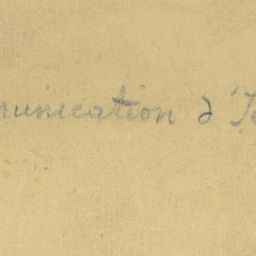 munication d'